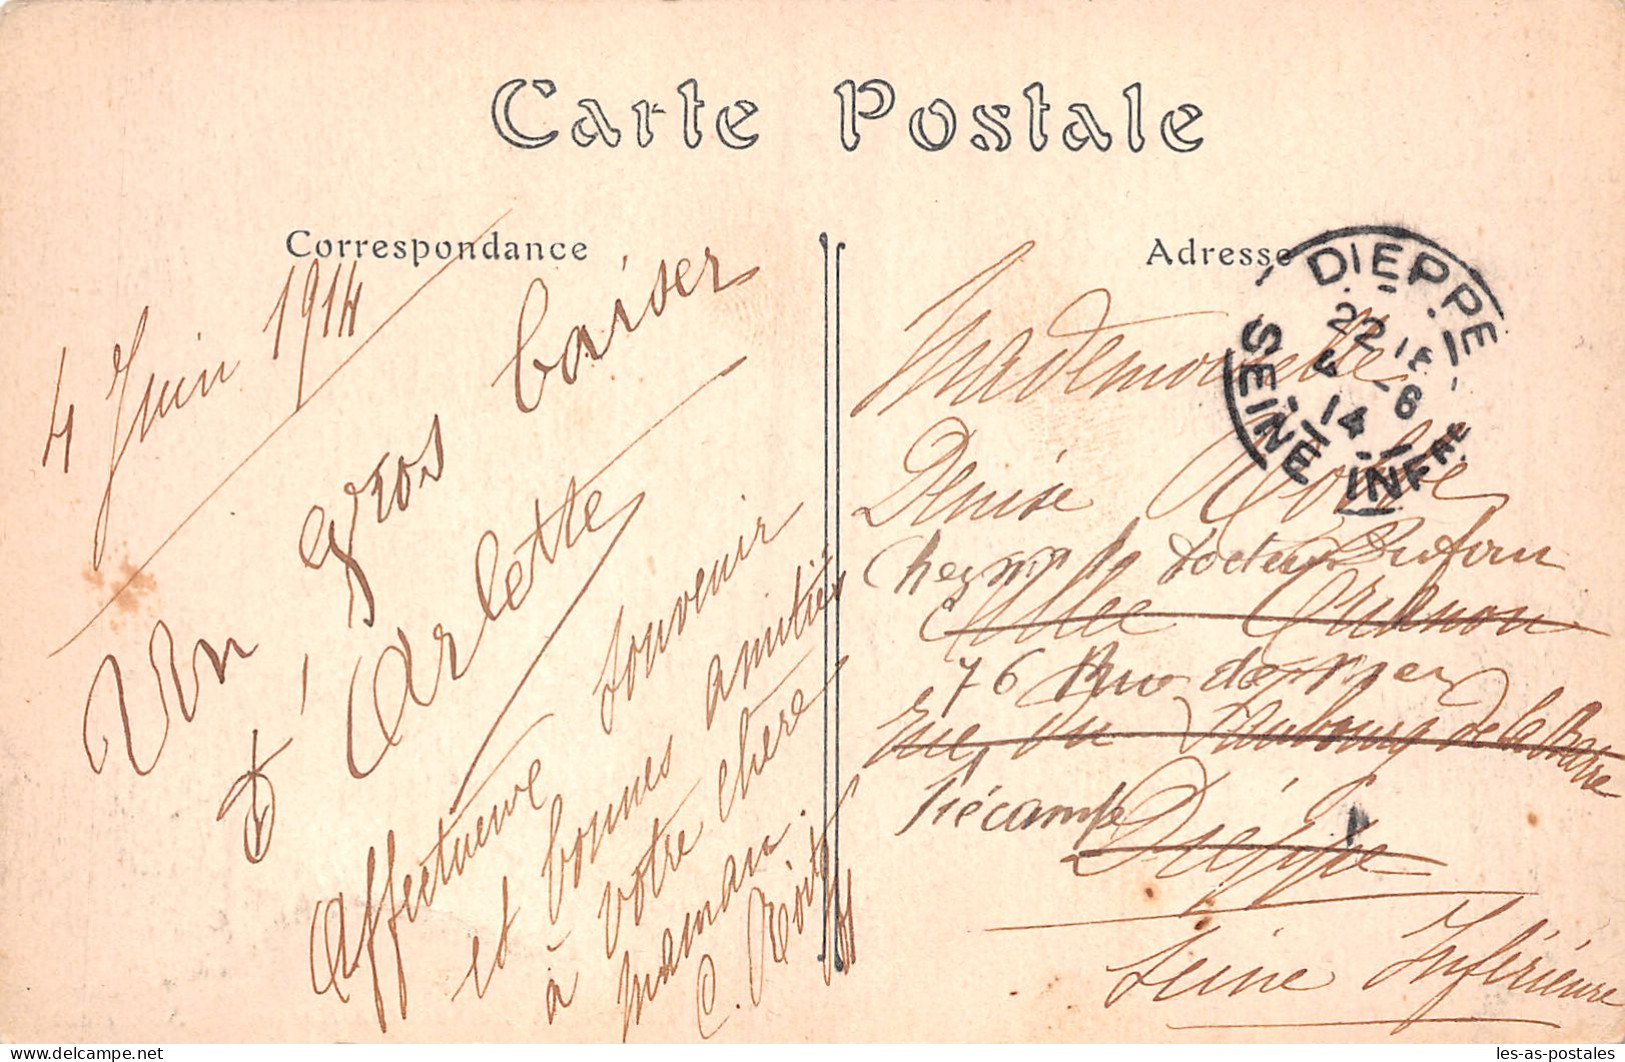 Carte Postale
Correspondance
4 Juin 1914
Un gros baiser
d'Arlette
Affectueux souvenir
et bonnes amitiés
à votre chère
maman.
C.
Adresse
Mademoiselle
Denise
chez mr le docteur Dufour
Allée
76 Rue de mer
Rue du Faubourg de la Barre
Fécamp
Dieppe
Seine Inférieure
DIEPPE
22 15
4 -6
14
SEINE INFRE
les-as-postales
www.delcampe.net